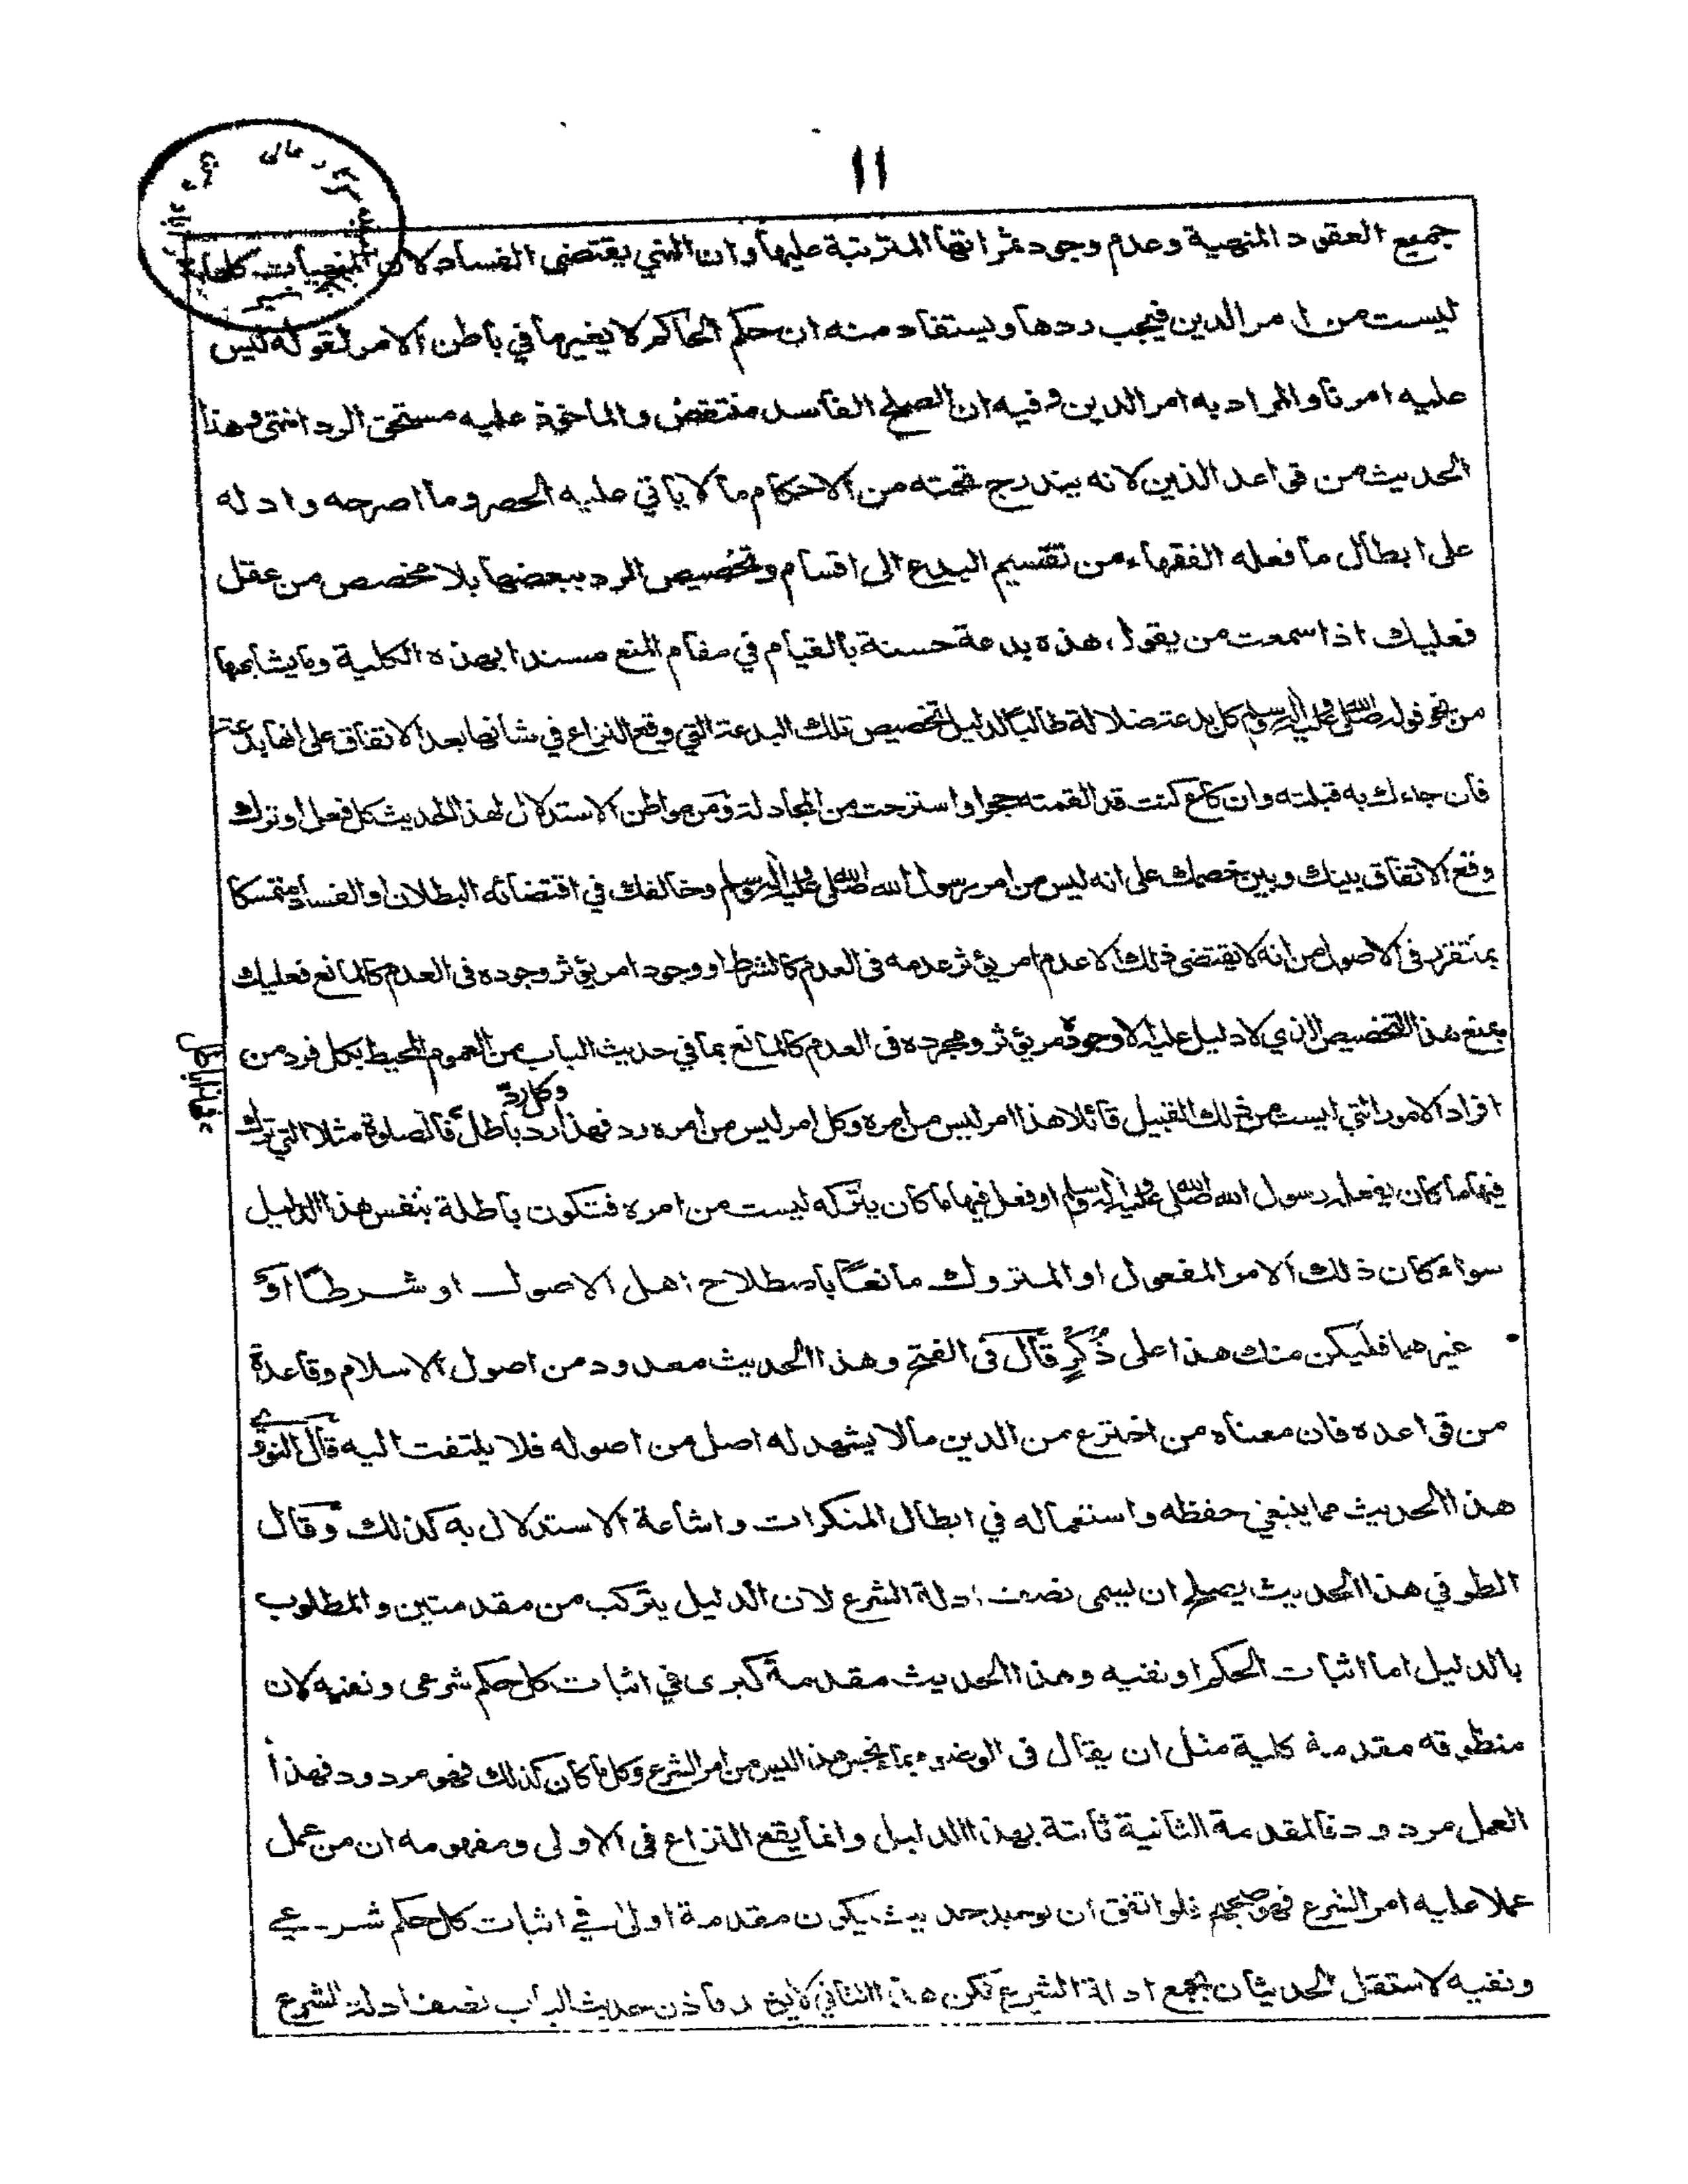 ١١
جميع العقود المنهية وعدم وجود ثمراتها المترتبة عليها وان النهي يقتضى الفساد لان المنهيات كلها
ليست من امر الدين فيجب ردها ويستفاد منه ان حكم الحاكم لا يغير ما في باطن الامر لقوله ليس
عليه امرنا والمراد به امر الدين وفيه ان الصلح الفاسد منتقض والماخوذ عليه مستحق الرد انتهى وهذا
الحديث من قواعد الدين لانه يندرج تحته من الاحكام ما لا ياتي عليه الحصر وما اصرحه وادله
على ابطال ما فعله الفقهاء من تقسيم البدع الى اقسام وتخصيص الرد ببعضها بلا مخصص من عقل
فعليك اذا سمعت من يقول هذه بدعة حسنة بالقيام في مقام المنع مسندا بهذه الكلية وما يشابهها
من نحو قوله صلى الله عليه وآله وسلم كل بدعة ضلالة طالبا لدليل تخصيص تلك البدعة التي وقع النزاع في شانها بعد الاتفاق على انها بدعة
فان جاءك به قبلته وان كاع كنت قد القمته حجرا واسترحت من المجادلة ومن مواطن الاستدلال لهذا الحديث كل فعل او ترك
وقع الاتفاق بينك وبين خصمك على انه ليس من امر رسول الله صلى الله عليه وآله وسلم وخالفك في اقتضائه البطلان او الفساد متمسكا
بما تقرر فى الاصول من انه لا يقتضى ذلك الا عدم امر يؤثر عدمه فى العدم كالشرط او وجود امر يؤثر وجوده فى العدم كالمانع فعليك
بمنع هذا التخصيص الذي لا دليل عليه الا مجرد الاصطلاح
بما في حديث الباب من العموم المحيط بكل فرد من
افراد الامور التي ليست من ذلك القبيل قائلا هذا امر ليس من امره وكل امر ليس من امره رد فهذا رد وكل رد باطل فالصلوة مثلا التي ترك
فيها ما كان يفعله رسول الله صلى الله عليه وآله وسلم او فعل فيها ما كان يتركه ليست من امره فتكون باطلة بنفس هذا الدليل
سواء كان ذلك الامر المفعول او المتروك مانعا باصطلاح اهل الاصول او شرطا او
غيرهما فليكن منك هذا على ذُكرٍ قال فى الفتح وهذا الحديث معدود من اصول الاسلام وقاعدة
من قواعده فان معناه من اخترع من الدين ما لا يشهد له اصل من اصوله فلا يلتفت اليه قال النووي
هذا الحديث مما ينبغي حفظه واستعماله في ابطال المنكرات واشاعة الاستدلال به كذلك وقال
الطوفي هذا الحديث يصلح ان يسمى نصف ادلة الشرع لان الدليل يتركب من مقدمتين والمطلوب
بالدليل اما اثبات الحكم او نفيه وهذا الحديث مقدمة كبرى في اثبات كل حكم شرعى ونفيه لان
منطوقه مقدمة كلية مثل ان يقال فى الوضوء بماء نجس هذا ليس من امر الشرع وكل ما كان كذلك فهو مردود فهذا
العمل مردود فالمقدمة الثانية ثابتة بهذا الدليل وانما يقع النزاع فى الاولى ومفهومه ان من عمل
عملا عليه امر الشرع فهو صحيح فلو اتفق ان يوجد حديث يكون مقدمة اولى في اثبات كل حكم شرعي
ونفيه لاستقل الحديثان بجمع ادلة الشرع لكن هذا الثاني لا يوجد فاذن حديث الباب نصف ادلة الشرع